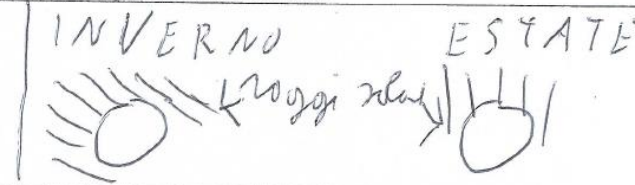 INVERNO ESTATE
raggi solari